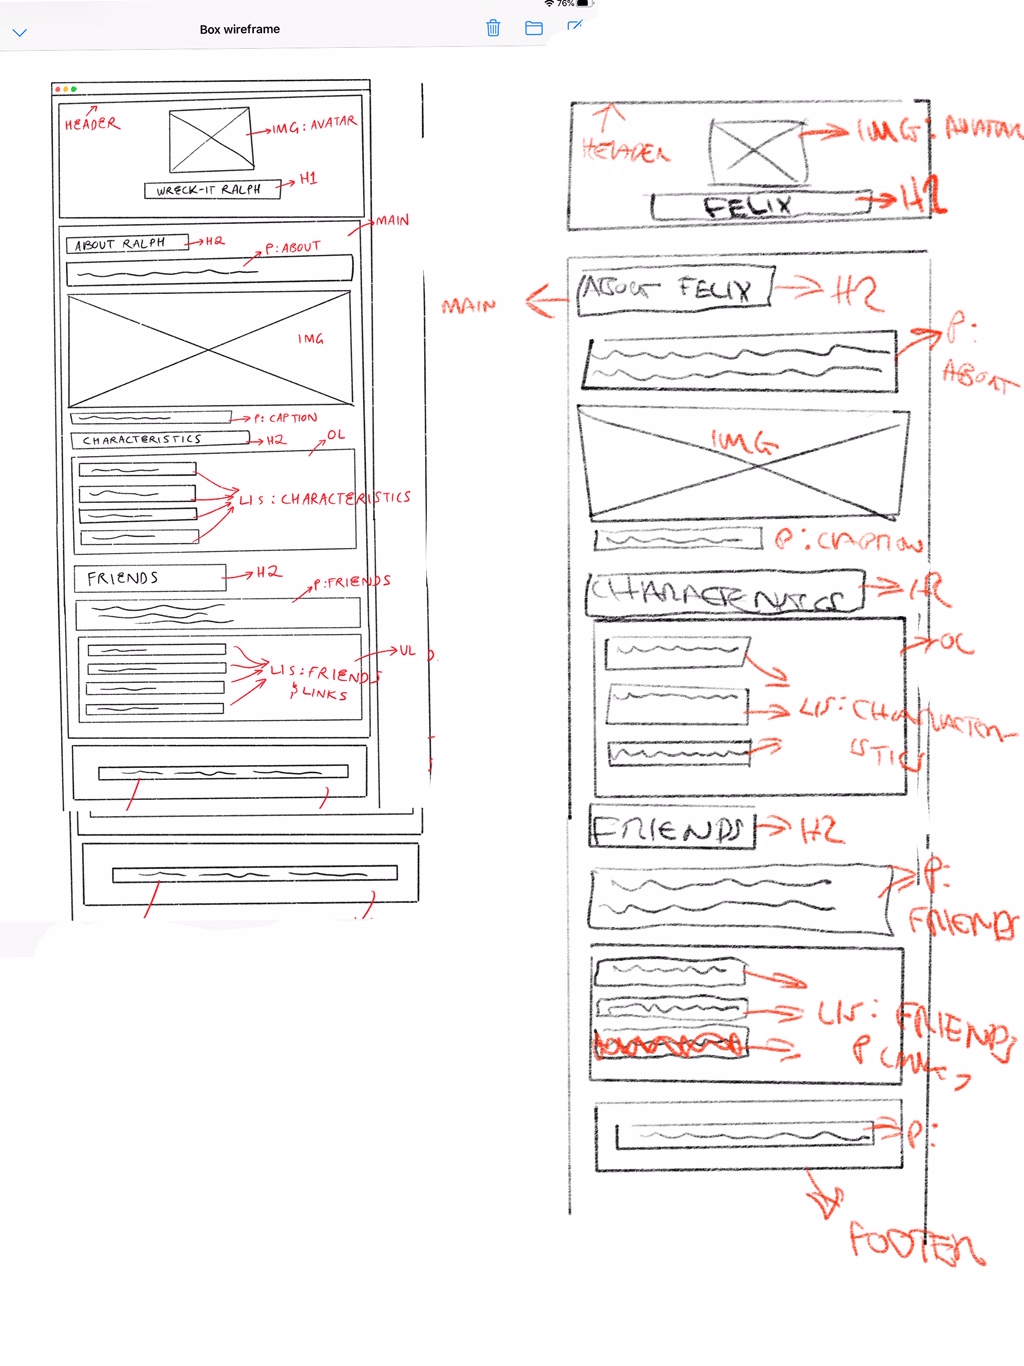 76%
Box wireframe
HEADER
IMG: AVATAR
WRECK-IT RALPH
H1
MAIN
ABOUT RALPH
H2
P: ABOUT
IMG
P: CAPTION
CHARACTERISTICS
H2
OL
LIS: CHARACTERISTICS
FRIENDS
H2
P: FRIENDS
UL
LIS: FRIENDS
& LINKS
HEADER
IMG: AVATAR
FELIX
H1
MAIN
ABOUT FELIX
H2
P:
ABOUT
IMG
P: CAPTION
H2
OL
LIS: CHARACTER-
ISTICS
FRIENDS
H2
P:
FRIENDS
LIS: FRIENDS
P:
FOOTER